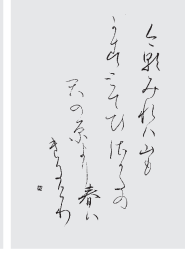 今朝みれハ山も
かすミてひ佐かたの
天の原より春ハ
きにけり